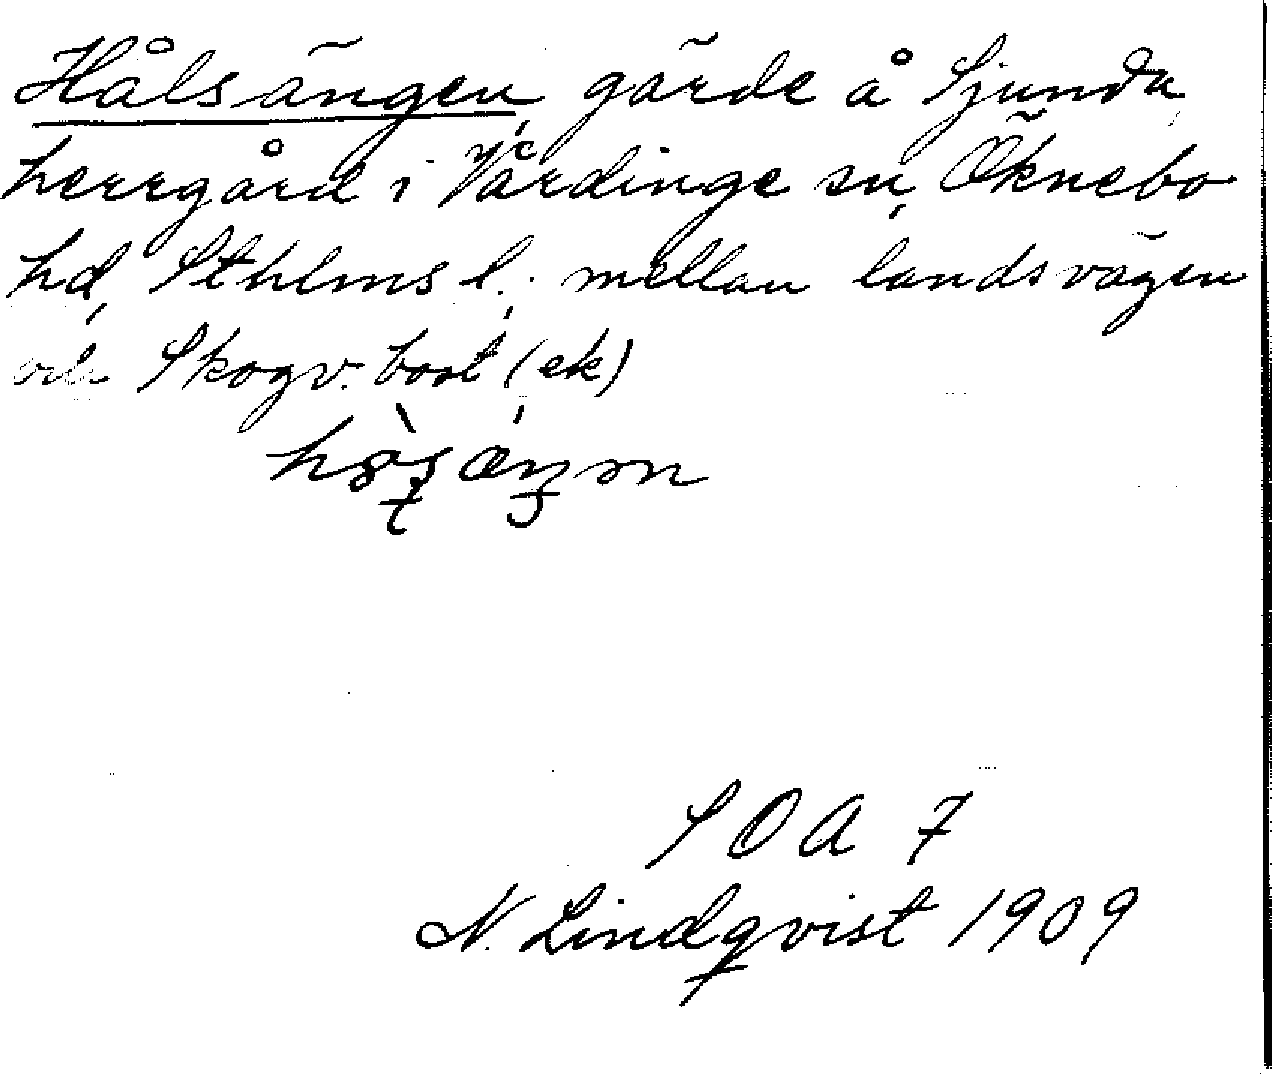 Hålsängen, gärde å Sjunda
herrgård i Vårdinge sn, Öknebo
hd, Sthlms l.; mellan landsvägen
och Skogv. bost (ek)
SOA 7
N. Lindqvist 1909